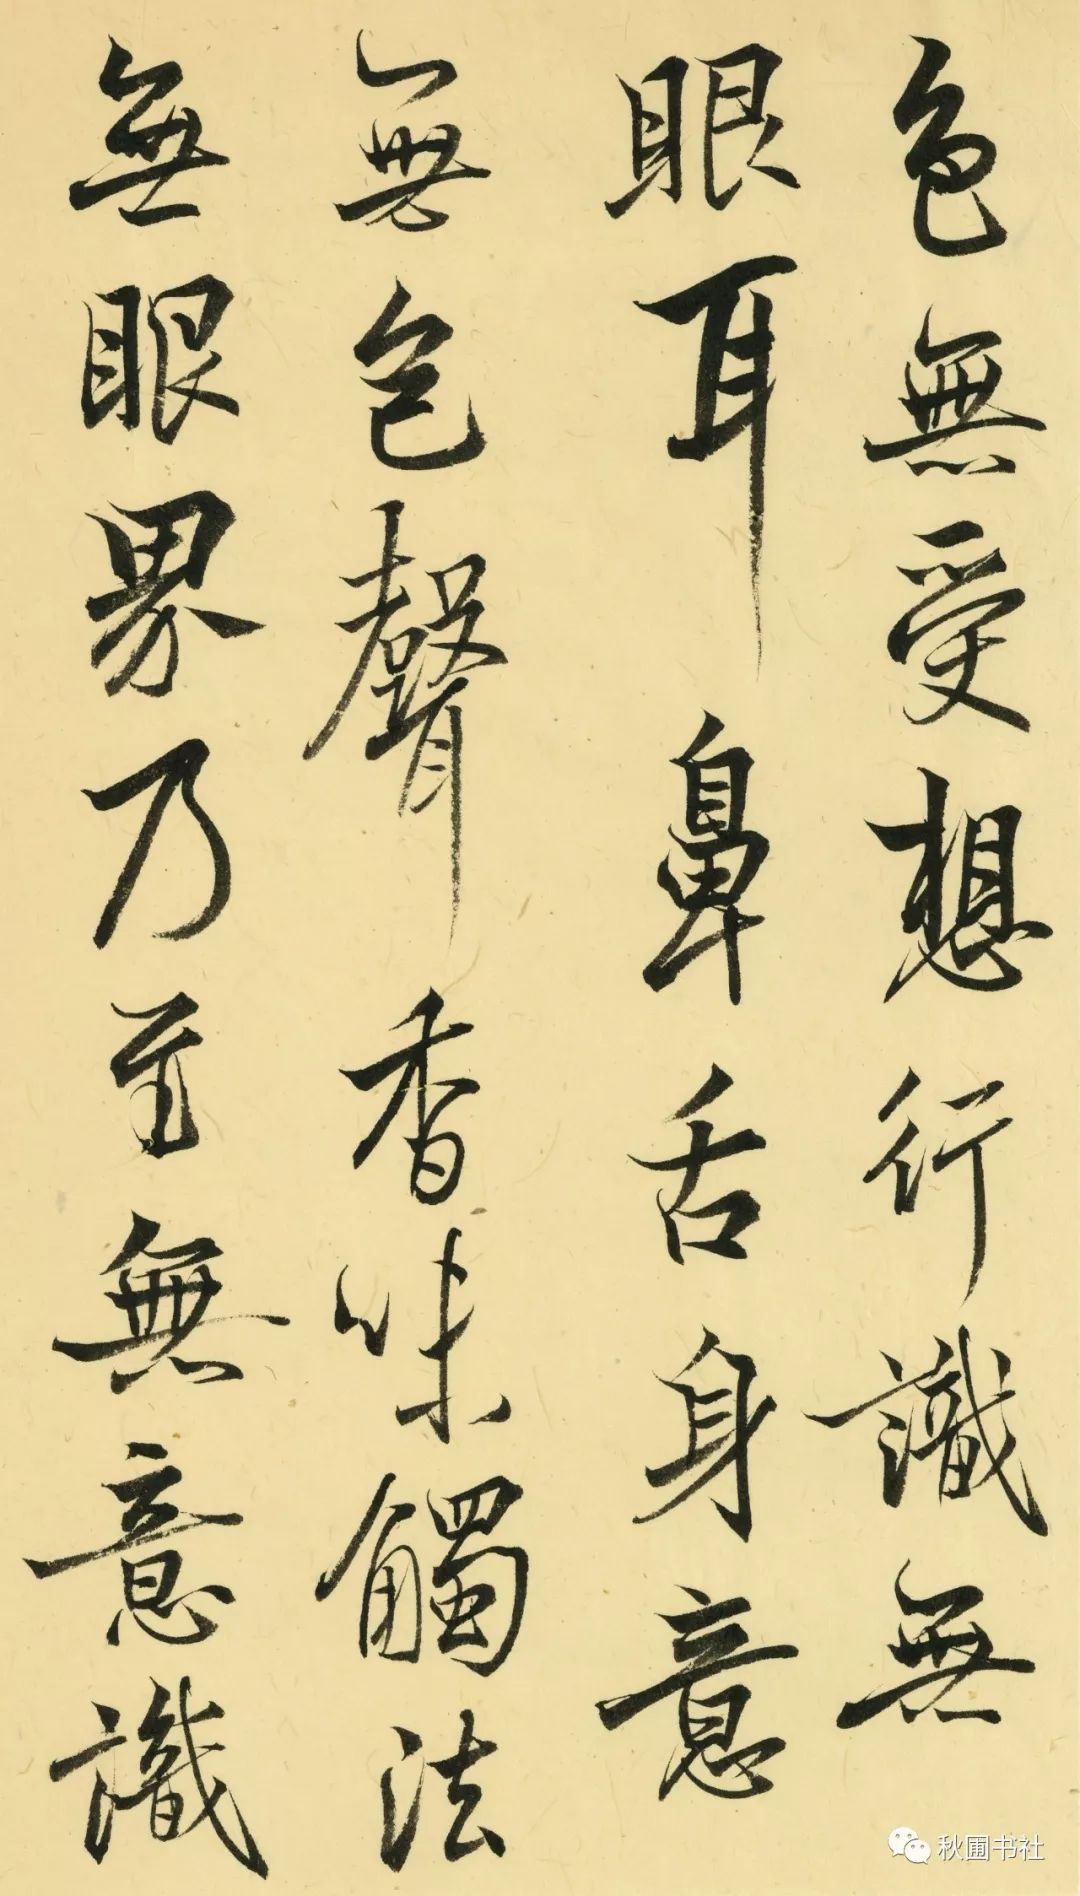 色無受想行識無
眼耳鼻舌身意
無色聲香味觸法
無眼界乃至無意識
秋圃书社